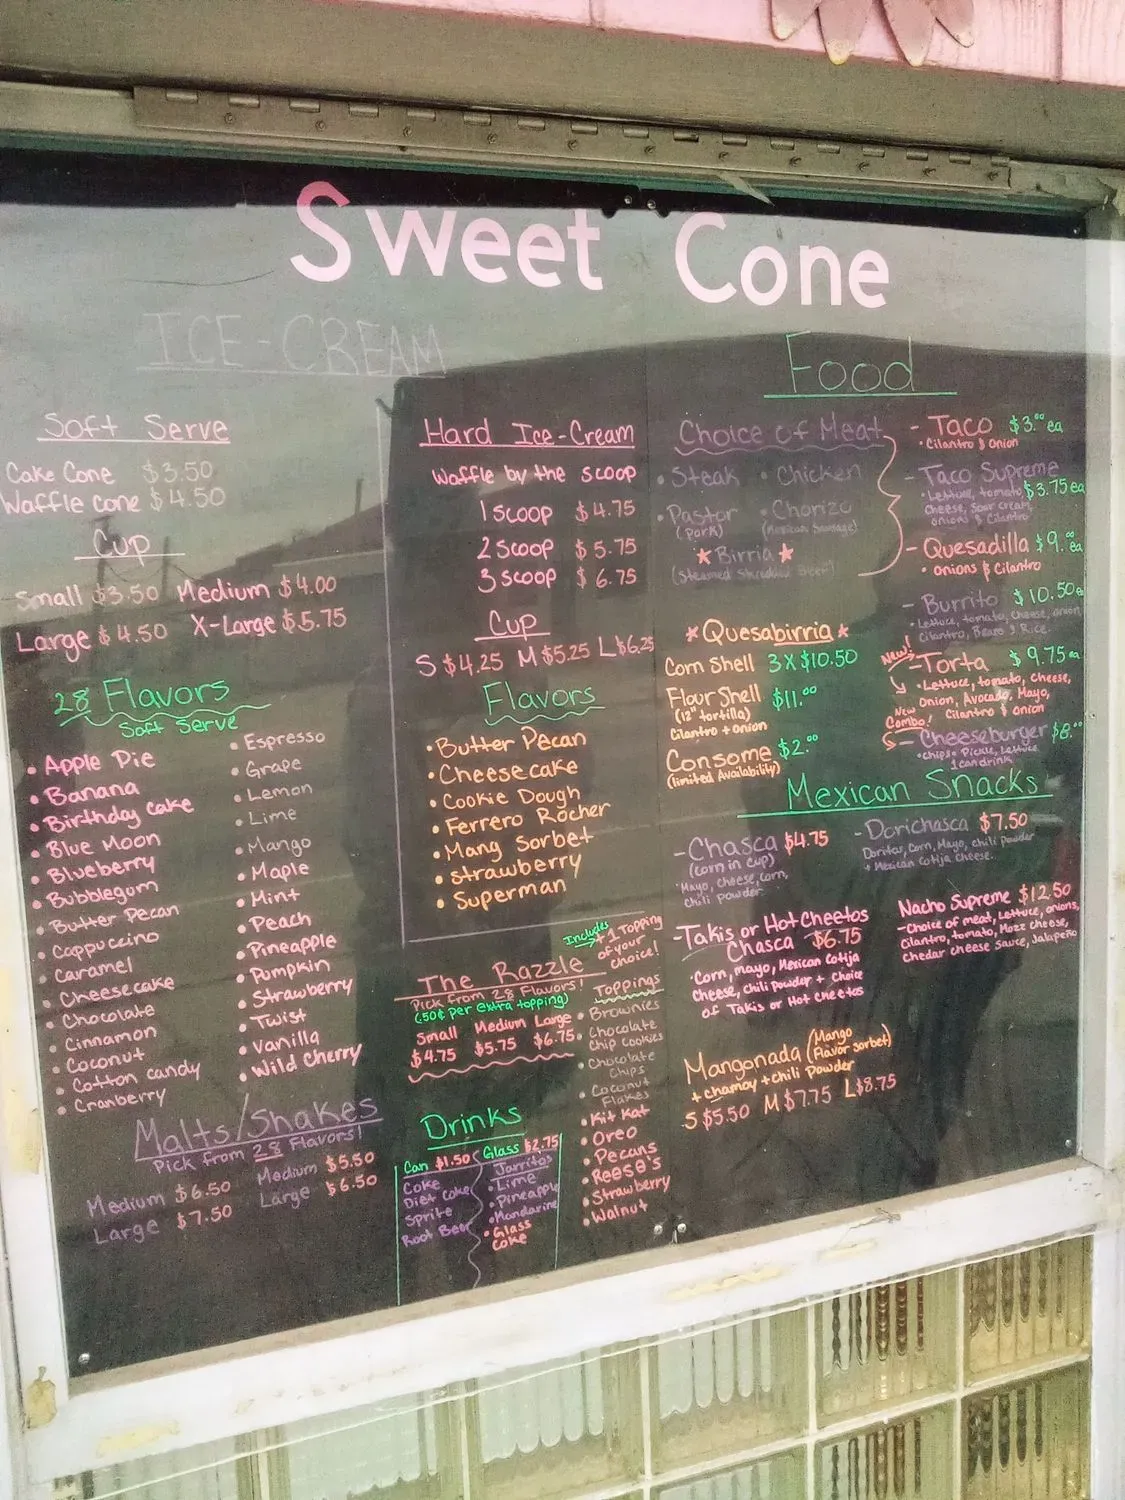 Sweet Cone
ICE-CREAM
Soft Serve
Cake Cone $3.50
Waffle cone $4.50
Cup
Small $3.50 Medium $4.00
Large $4.50 X-Large $5.75
28 Flavors
Soft Serve
• Apple Pie
• Banana
• Birthday cake
• Blue Moon
• Blueberry
• Bubblegum
• Butter Pecan
• Cappuccino
• Caramel
• Cheesecake
• Chocolate
• Cinnamon
• Coconut
• Cotton candy
• Cranberry
• Espresso
• Grape
• Lemon
• Lime
• Mango
• Maple
• Mint
• Peach
• Pineapple
• Pumpkin
• Strawberry
• Twist
• Vanilla
• Wild Cherry
Malts/Shakes
Pick from 28 Flavors!
Medium $6.50
Large $7.50
Medium $5.50
Large $6.50
Hard Ice-Cream
Waffle by the scoop
1 scoop $4.75
2 scoop $5.75
3 scoop $6.75
Cup
S $4.25 M $5.25 L $6.25
Flavors
• Butter Pecan
• Cheesecake
• Cookie Dough
• Ferrero Rocher
• Mang Sorbet
• Strawberry
• Superman
The Razzle
Pick from 28 Flavors!
(.50¢ per extra topping)
Small Medium Large
$4.75 $5.75 $6.75
Includes
+ 1 Topping
of your
choice!
Toppings
• Brownies
• Chocolate
Chip Cookies
• Chocolate
Chips
• Coconut
Flakes
• Kit Kat
• Oreo
• Pecans
• Reese's
• Strawberry
• Walnut
Drinks
Can $1.50
Coke
Diet Coke
Sprite
Root Beer
Glass $2.75
Jarritos
• Lime
• Pineapple
• Mandarine
• Glass
Coke
Food
Choice of Meat
• Steak • Chicken
• Pastor • Chorizo
(Pork) (Mexican Sausage)
★ Birria ★
(Steamed Shredded Beef)
★ Quesabirria ★
Corn Shell 3 X $10.50
Flour Shell $11.00
(12" tortilla)
Cilantro + Onion
Consome $2.00
(limited Availability)
- Taco $3.00 ea
• Cilantro & Onion
- Taco Supreme
• Lettuce, tomato $3.75 ea
Cheese, Sour cream,
onions & Cilantro
- Quesadilla $9.00 ea
• Onions & Cilantro
- Burrito $10.50 ea
• Lettuce, tomato, cheese, onion,
Cilantro, Beans & Rice.
New!
- Torta $9.75 ea
• Lettuce, tomato, cheese,
Onion, Avocado, Mayo,
Cilantro & onion
New
Combo!
- Cheeseburger $8.00
• chips • Pickle, Lettuce
1 can drink
Mexican Snacks
- Chasca $4.75
(corn in cup)
Mayo, cheese, corn,
chili powder
- Dorichasca $7.50
Doritos, Corn, Mayo, chili powder
+ Mexican Cotija Cheese.
- Takis or Hot Cheetos
Chasca $6.75
• Corn, mayo, Mexican Cotija
cheese, chili powder + choice
of Takis or Hot cheetos
Nacho Supreme $12.50
- Choice of meat, Lettuce, onions,
Cilantro, tomato, Mozz cheese,
chedar cheese Sauce, Jalapeño
Mangonada (Mango
Flavor sorbet)
+ chamoy + chili powder
S $5.50 M $7.75 L $8.75